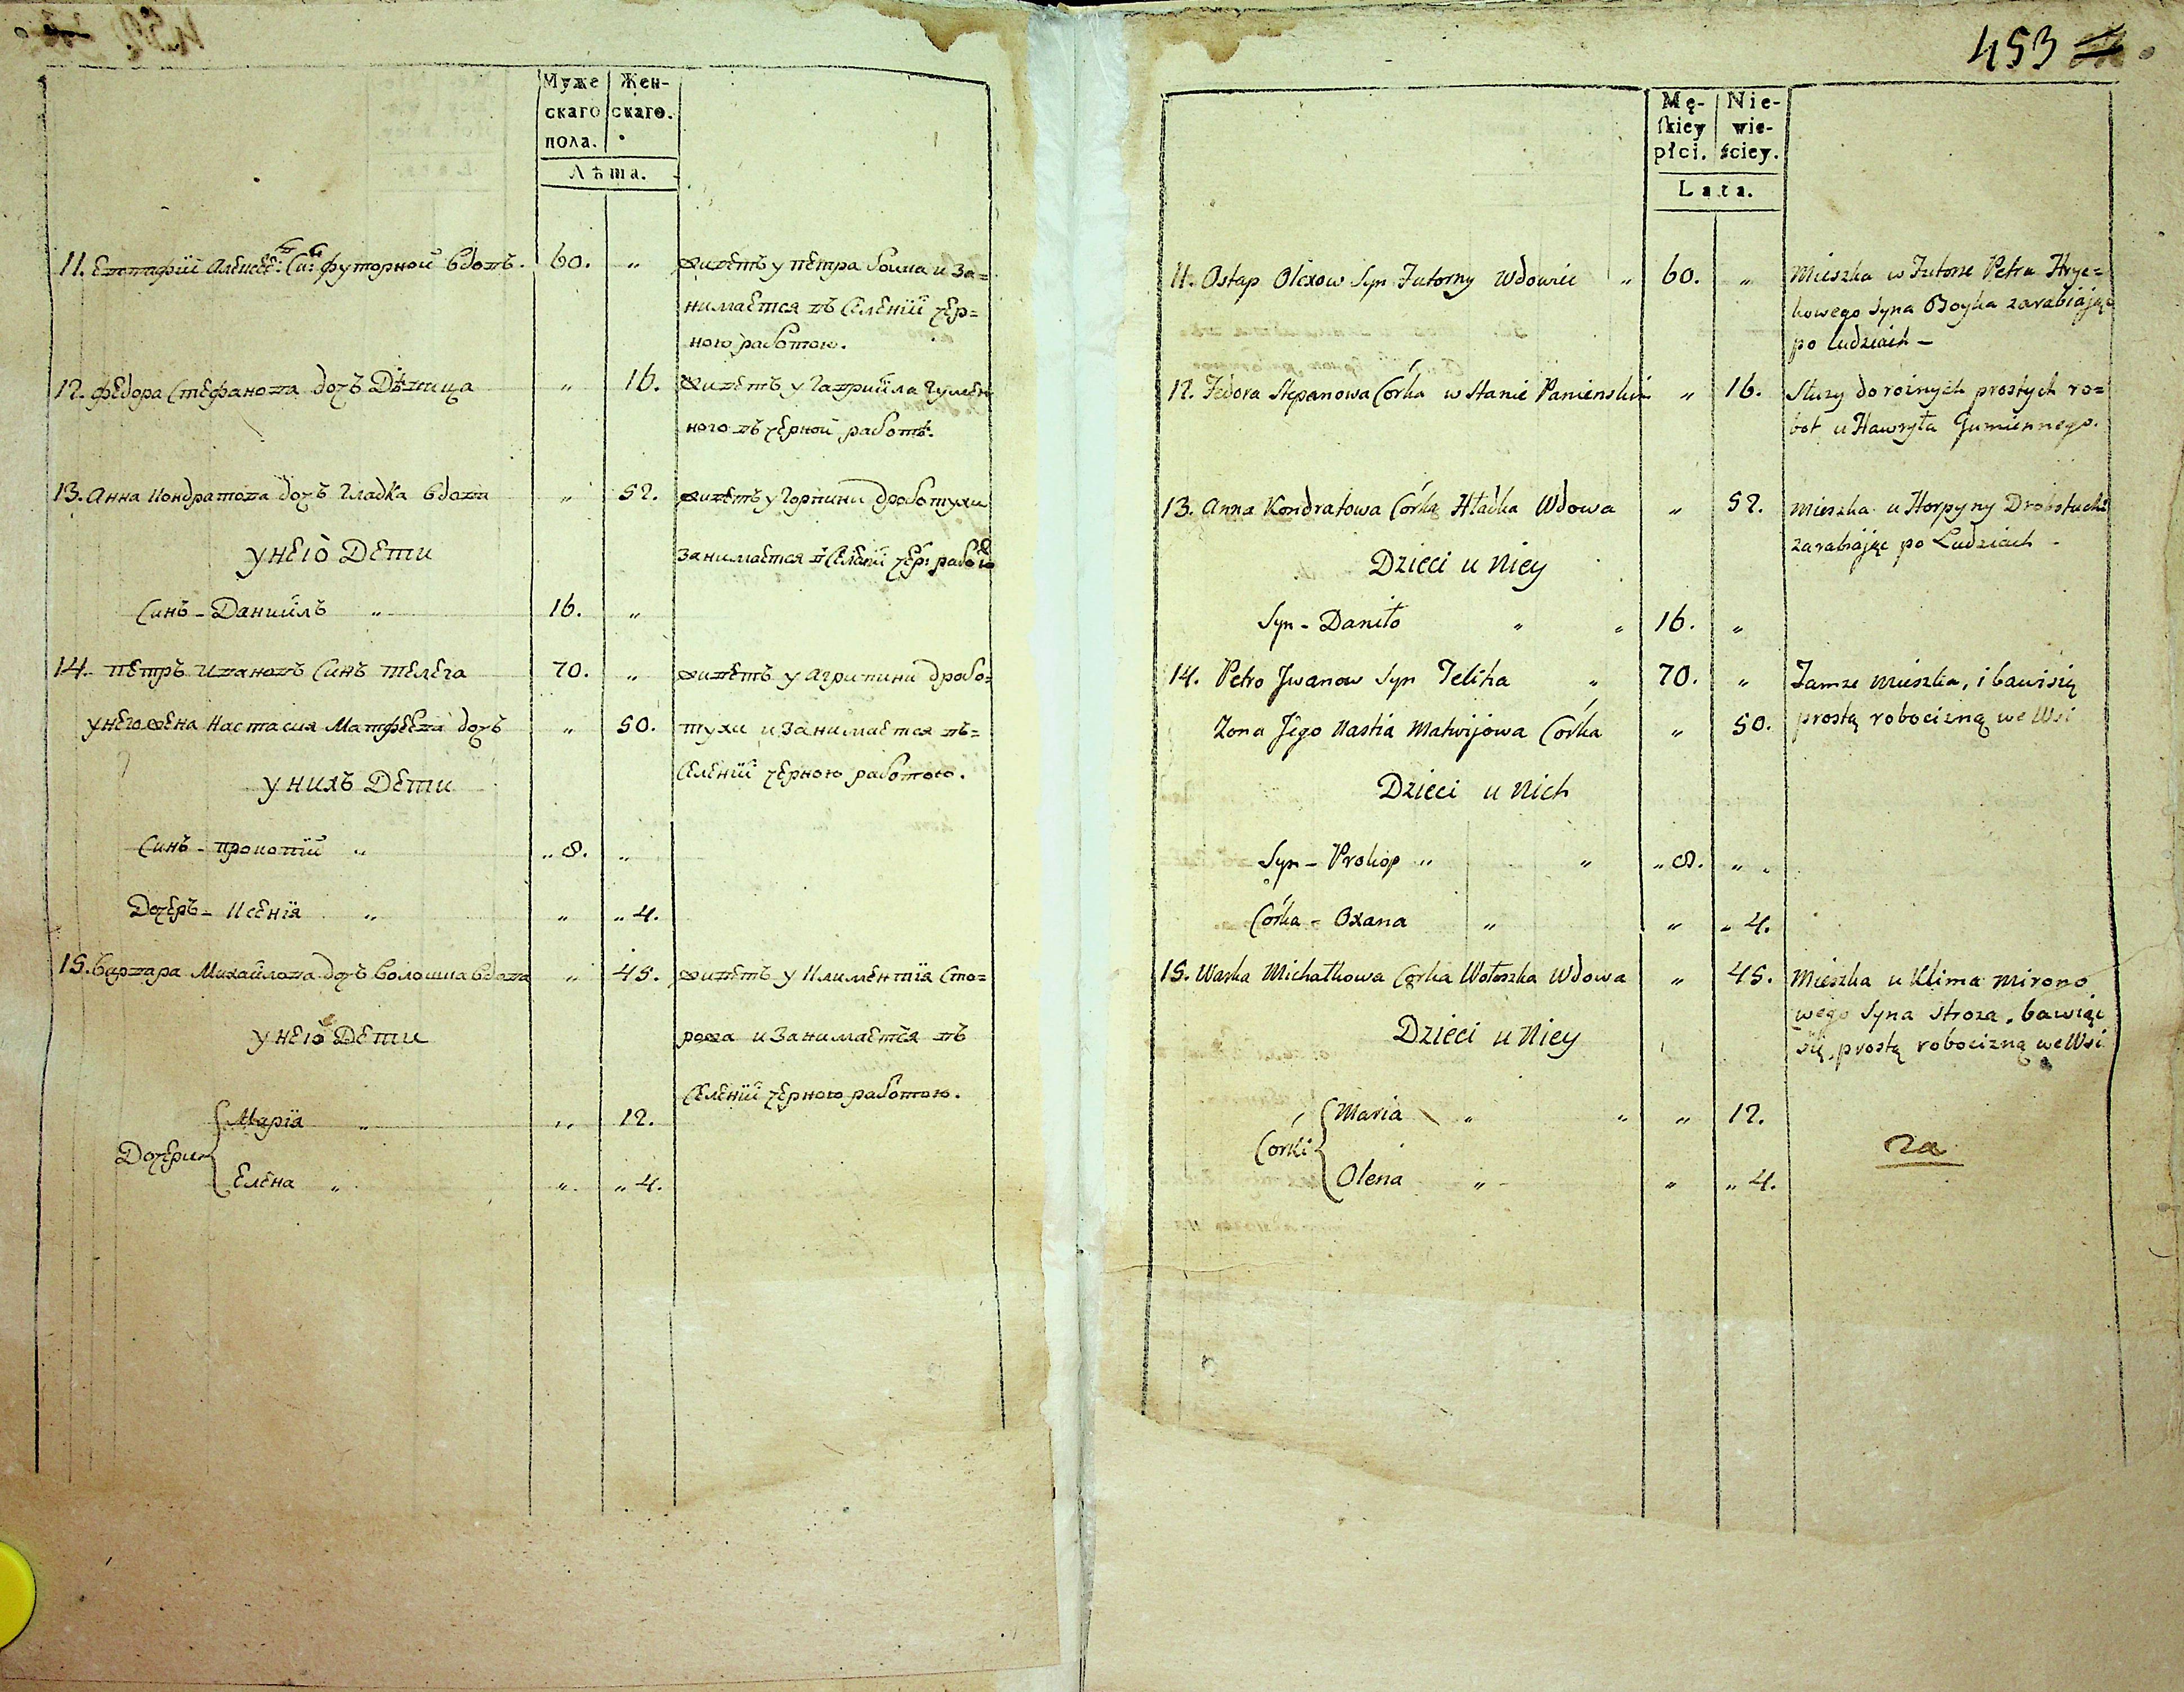 Муже
скаго
пола.
Жен-
скаго.
Лѣта.
11. Евтафiй Алексѣев: Син: футорной вдовъ. 60. „ живетъ у петра бойка и за=
нимается въ Селенiй чер=
ною работою.
12. федора Стефанова дочъ Дѣвица „ 16. живетъ у Гаврийла Гумен
ного въ черной работѣ.
13. Анна Кондратова дочъ Гладка вдова „ 52. живетъ у Горпини дроботухи
у нею Дети занимается в Селенiй чер: работою
Синъ - Данийлъ „ 16. „
14. петръ Ивановъ Синъ телега 70. „ живетъ у Агрипини дробо=
у него жена Настасия Матфеева дочъ „ 50. тухи и занимается въ=
Селенiй черною работою.
у нихъ Дети
Синъ - прокопiй „ „ 8. „
Дочеръ - Ксенiя „ „ „ 4.
15. варвара Михайлова дочъ волошка вдова „ 45. живетъ у Климентiя Сто=
у нею Дети рожа и занимается въ
Селенiй черною работою.
Дочери { Марiя „ „ 12.
Елена „ „ „ 4.
453
Mę-
ſkiey
płci.
Nie-
wie-
ściey.
Lata.
11. Ostap Olexow Syn Futorny Wdowiec „ 60. „ Mieszka w Futorze Petra Hryc=
kowego Syna Boyka zarabiając
po Ludziach –
12. Fedora Stepanowa Córka w Stanie Panienskim „ 16. Służy do roznych prostych ro=
bot u Hawryła Gumiennego.
13. Anna Kondratowa Córka Hładka Wdowa „ 52. Mieszka u Horpyny Drobotuchi
zarabiając po Ludziach.
Dzieci u Niey
Syn - Daniło „ „ 16. „
14. Petro Jwanow Syn Teliha „ 70. „ Tamze mieszka, i bawi się
Zona Jego Nastia Matwijowa Córka „ 50. prostą robocizną we Wsi
Dzieci u Nich
Syn - Prokop „ „ „ 8. „ „
Córka - Oxana „ „ „ 4.
15. Warka Michałkowa Corka Wołoszka Wdowa „ 45. Mieszka u Klima Mirono
wego Syna Stroza, bawiąc
Dzieci u Niey się prostą robocizną we Wsi
Córki { Maria „ „ „ 12.
Olena „ „ „ 4.